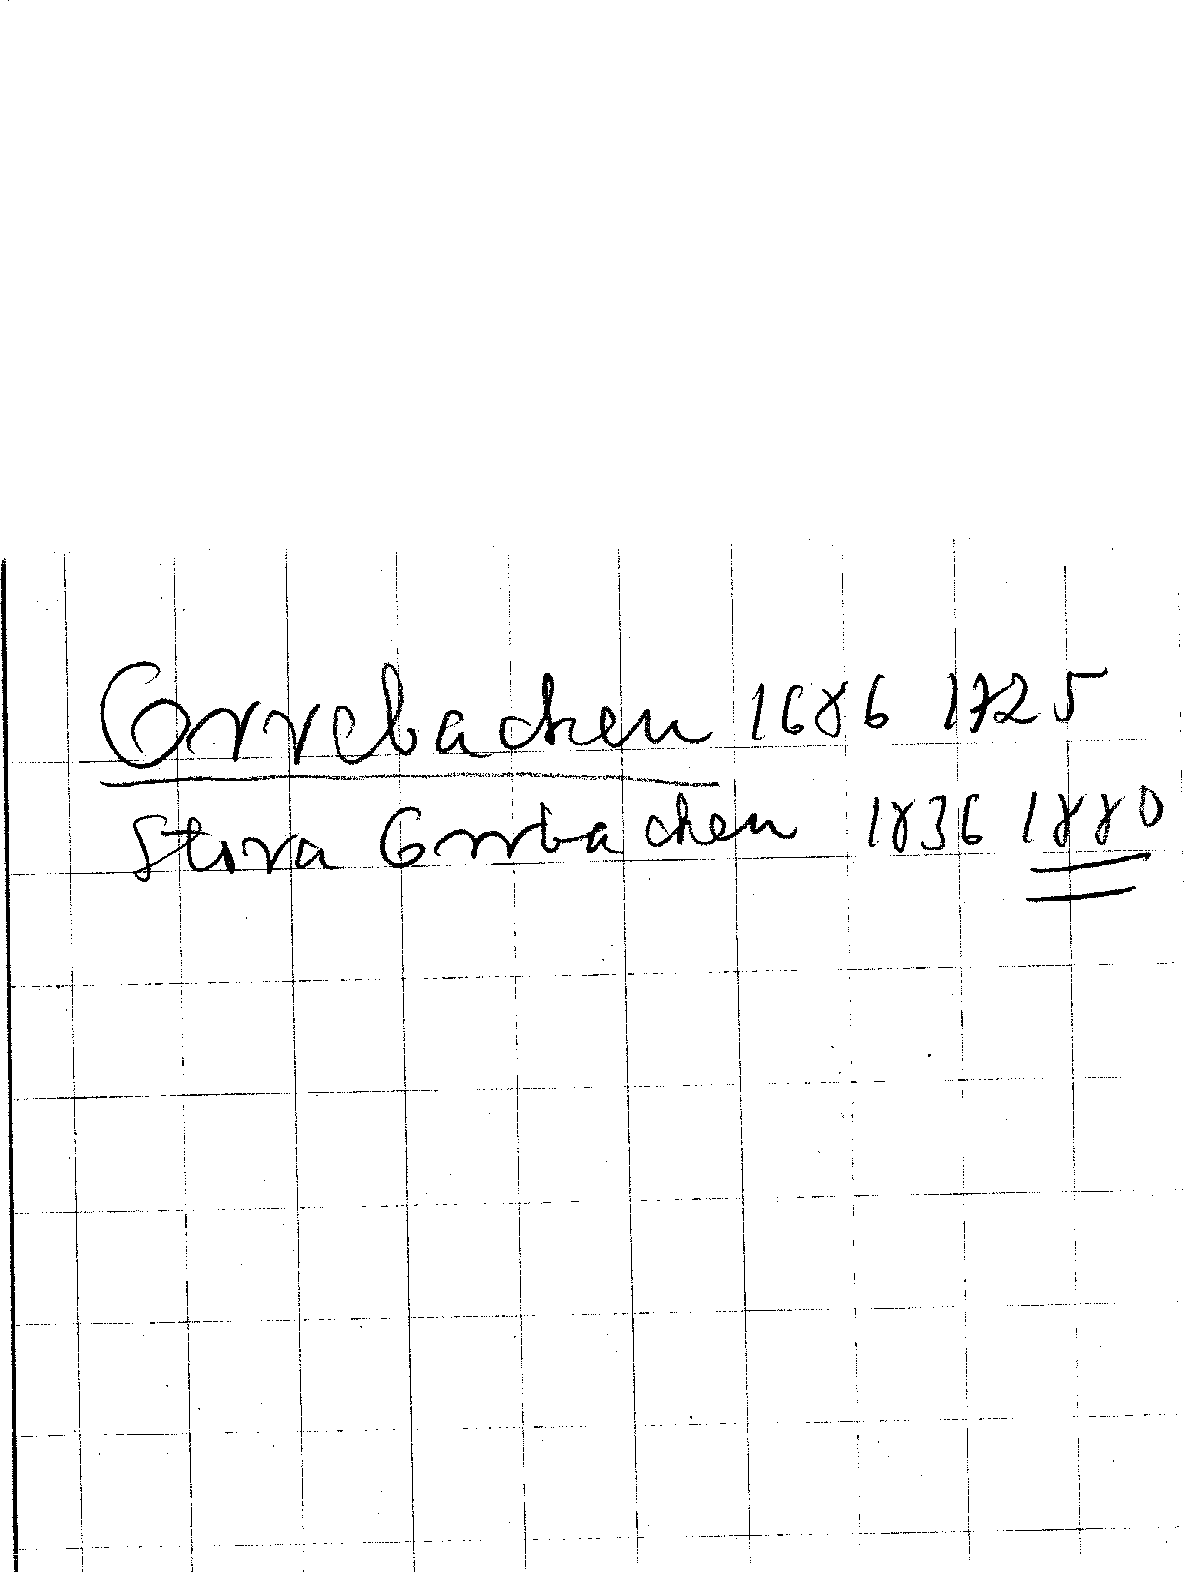 Orrebacken 1686 1725
Stora Orrbacken 1836 1880